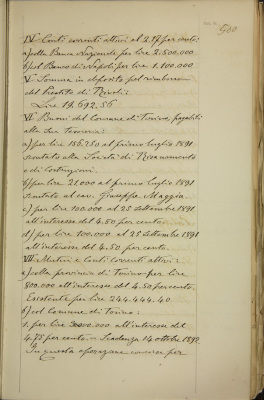 500
IV Conti correnti attivi al 2.75 per cento
a) colla Banca Nazionale per lire 2.500.000
b) col Banco di Napoli per lire 1.100.000
V Somma in deposito pel rimborso
del Prestito di Rivoli:
Lire 19.692.56
VI Buoni del Comune di Torino, pagabili
alla sua Tesoreria:
a) per lire 156.250 al primo luglio 1891
scontato alla Società di Risanamento
e di Costruzioni.
b) per lire 21000 al primo luglio 1891
scontato al cav. Giuseppe Maggia.
c) per lire 100.000 al 25 settembre 1891
all'interesse del 4.50 per cento.
d) per lire 100.000 al 25 settembre 1891
all'interesse del 4.50 per cento.
VII Mutui e Conti correnti attivi:
a) colla provincia di Torino per lire
800.000 all'interesse del 4.50 per cento.
Esistente per lire 244.444.40
b) col Comune di Torino:
1. per lire all'interesse del
4.75 per cento. Scadenza 14 ottobre 1892
In questa operazione concorse per